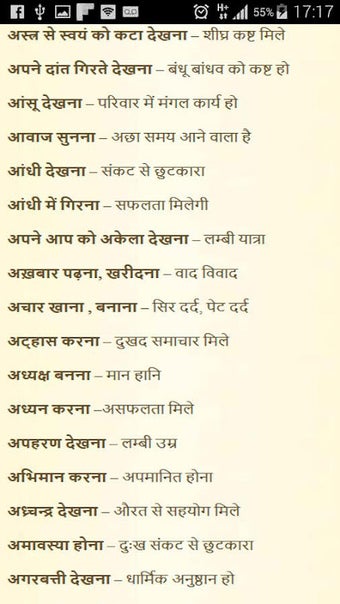 H+ 55% 17:17
अस्त्र से स्वयं को कटा देखना – शीघ्र कष्ट मिले
अपने दांत गिरते देखना – बंधू बांधव को कष्ट हो
आंसू देखना – परिवार में मंगल कार्य हो
आवाज सुनना – अछा समय आने वाला है
आंधी देखना – संकट से छुटकारा
आंधी में गिरना – सफलता मिलेगी
अपने आप को अकेला देखना – लम्बी यात्रा
अख़बार पढ़ना, खरीदना – वाद विवाद
अचार खाना , बनाना – सिर दर्द, पेट दर्द
अट्हास करना – दुखद समाचार मिले
अध्यक्ष बनना – मान हानि
अध्यन करना –असफलता मिले
अपहरण देखना – लम्बी उम्र
अभिमान करना – अपमानित होना
अध्र्चन्द्र देखना – औरत से सहयोग मिले
अमावस्या होना – दुःख संकट से छुटकारा
अगरबत्ती देखना – धार्मिक अनुष्ठान हो